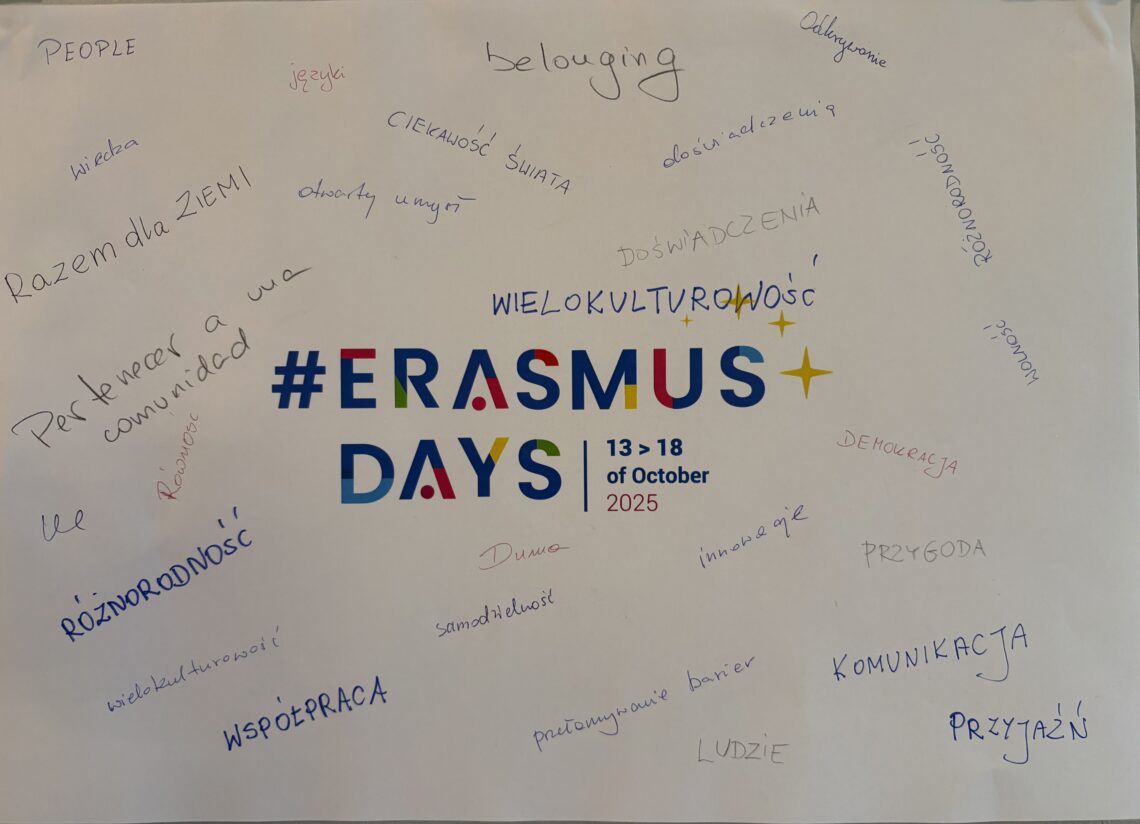 PEOPLE
języki
belonging
Odkrywanie
wiedza
CIEKAWOŚĆ ŚWIATA
doświadczenia
RÓŻNORODNOŚĆ
otwarty umysł
Razem dla ZIEMI
DOŚWIADCZENIA
WIELOKULTUROWOŚĆ
Pertenecer a una
comunidad
WOLNOŚĆ
#ERASMUS
DAYS
13 > 18
of October
2025
RÓWNOŚĆ
DEMOKRACJA
UE
RÓŻNORODNOŚĆ
Duma
innowacje
PRZYGODA
samodzielność
wielokulturowość
WSPÓŁPRACA
przełamywanie barier
KOMUNIKACJA
PRZYJAŹŃ
LUDZIE